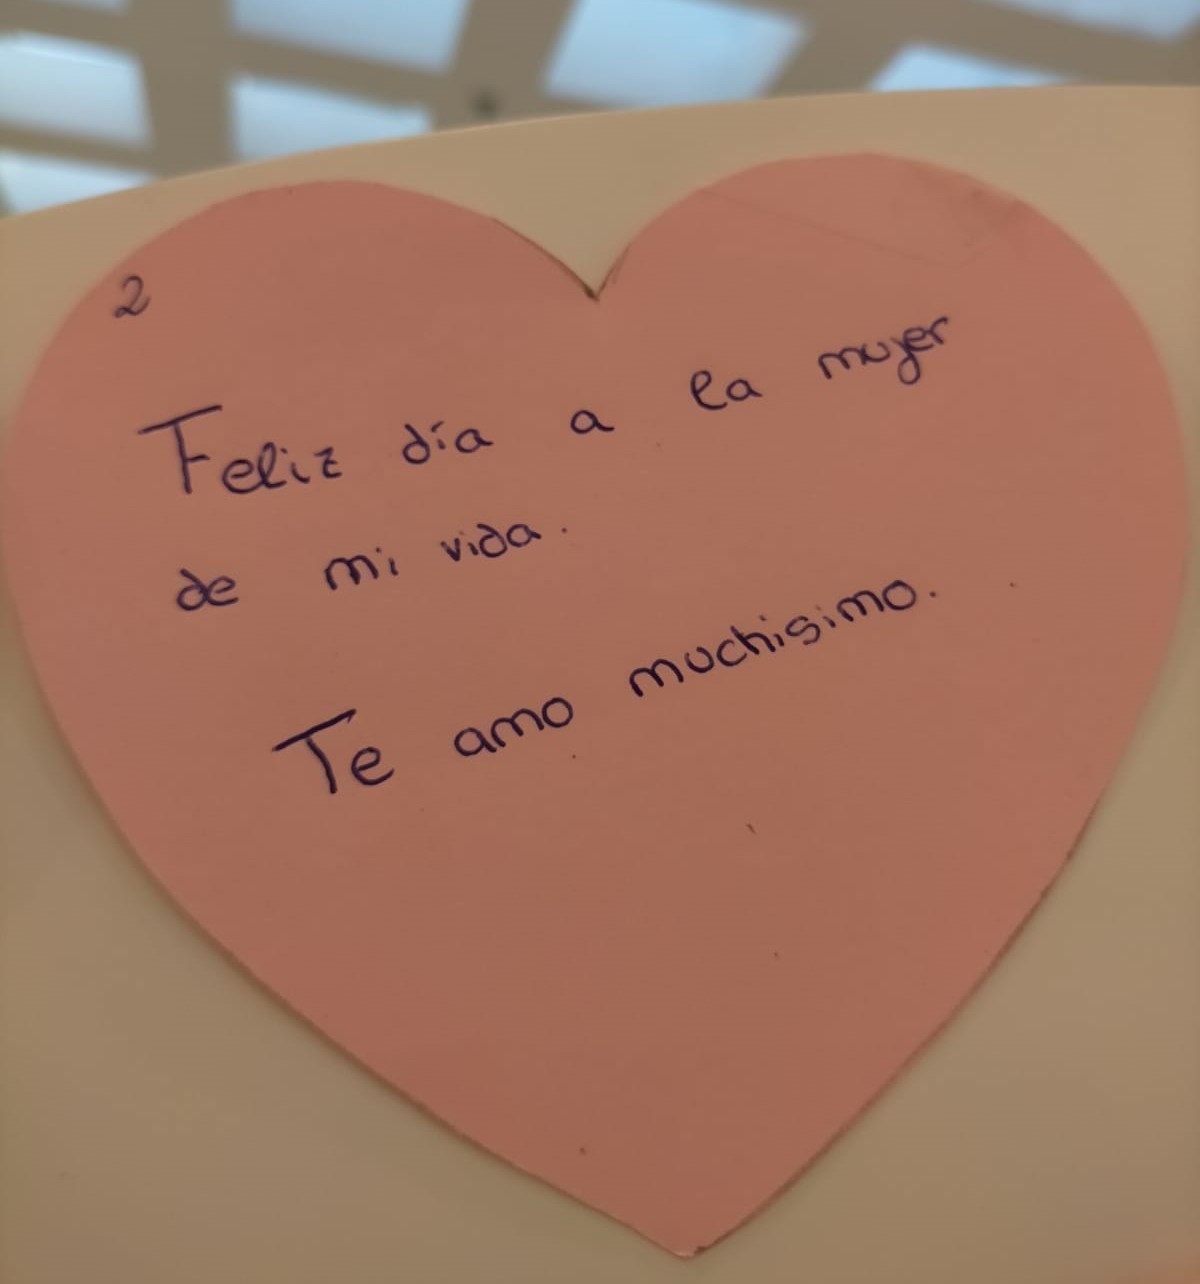 2
Feliz día a la mujer
de mi vida.
Te amo muchisimo.